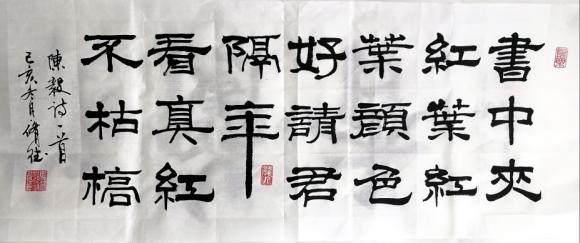 書中夾
紅葉紅
葉顏色
好請君
隔年
看真紅
不枯槁
陳毅诗一首
己亥冬月